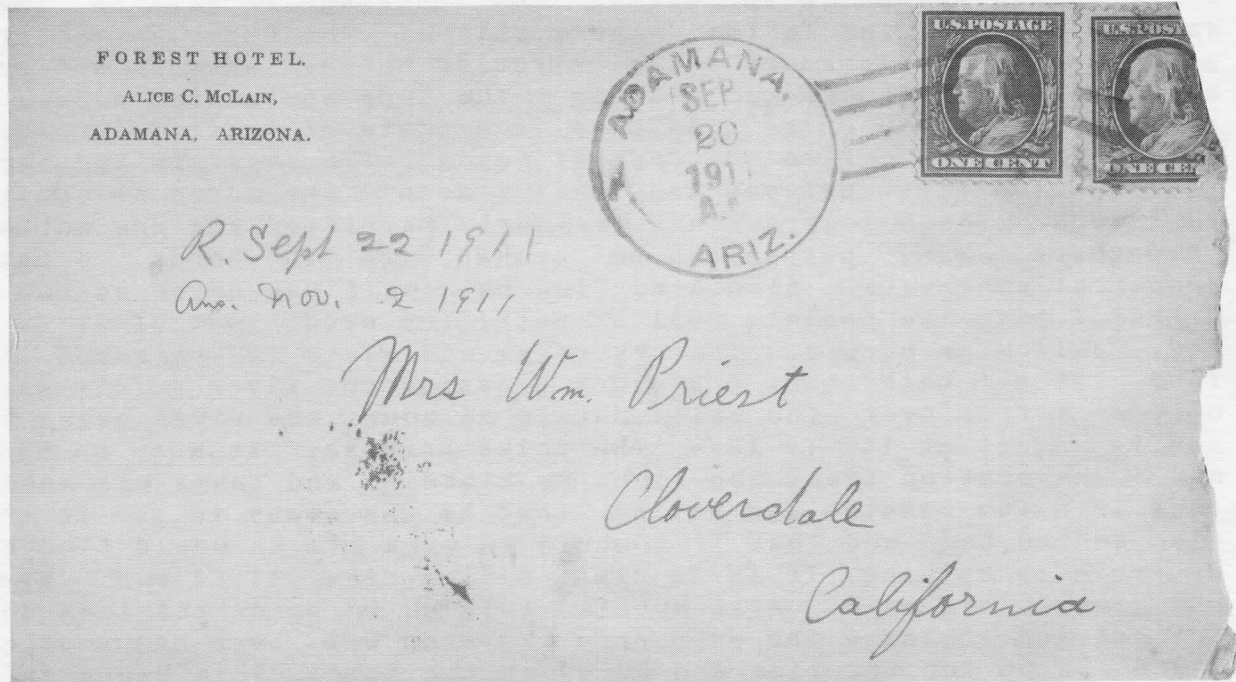 FOREST HOTEL.
ALICE C. McLAIN,
ADAMANA, ARIZONA.
ADAMANA.
SEP
20
1911
A.
ARIZ.
U.S. POSTAGE
ONE CENT
U.S. POSTAGE
ONE CEN
R. Sept 22 1911
Ans. Nov. 2 1911
Mrs Wm. Priest
Cloverdale
California